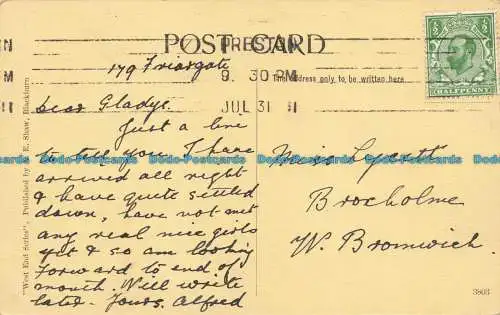 POST CARD
PRESTON
9. 30 PM
JUL 31 11
This address only to be written here.
HALFPENNY
179 Friargate
Dear Gladys.
Just a line
to tell you I have
arrived all right
& have quite settled
down, have not met
any real nice girls
yet & so am looking
forward to end of
month. Will write
later. Yours. Alfred
Miss Lyett
Broxholme
W. Bromwich.
"West End Series", Published by E. Shaw, Blackburn
3803
Dodo-Postcards Dodo-Postcards Dodo-Postcards Dodo-Postcards